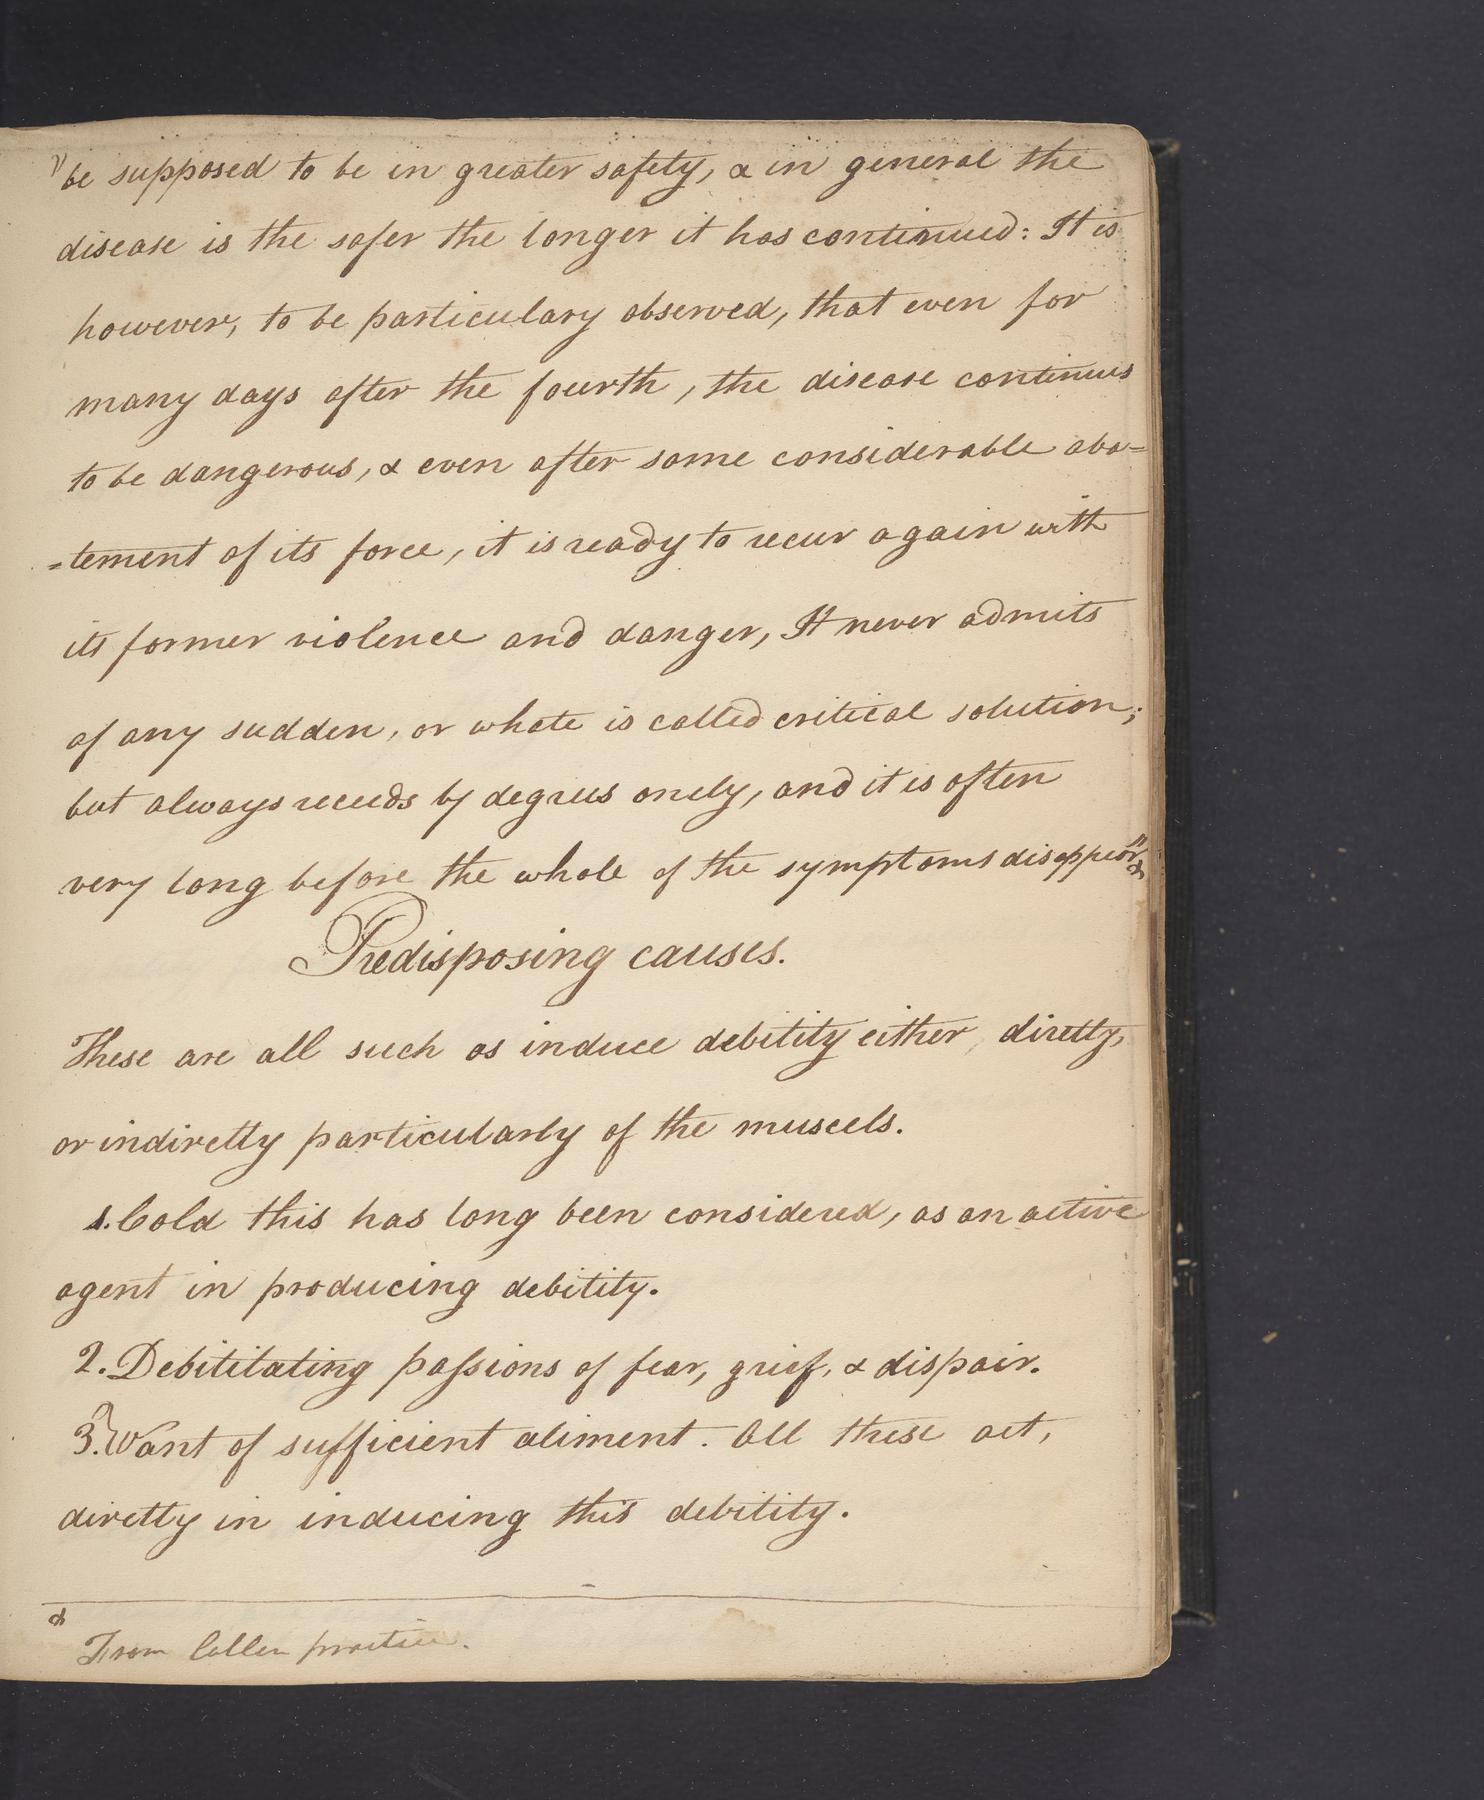 "be supposed to be in greater safety, & in general the
disease is the safer the longer it has continued: It is
however, to be particulary observed, that even for
many days after the fourth, the disease continues
to be dangerous, & even after some considerable aba=
=tement of its force, it is ready to recur again with
its former violence and danger, It never admits
of any sudden, or whate is called critical solution;
but always receeds by degrees onely, and it is often
very long before the whole of the symptoms disappear"
Predisposing causes.
These are all such as induce debility either, diretly,
or indiretly particularly of the muscels.
1. Cold this has long been considered, as an active
agent in producing debility.
2. Debilitating passions of fear, grief, & dispair.
3. Want of sufficient aliment. All these act,
diretly in inducing this debility.
From Cullen practice.